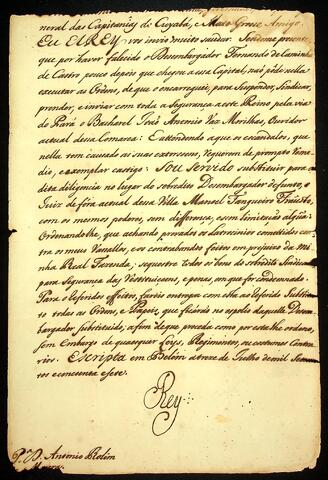 neral das Capitanias de Cuyabá, e Mato Groso Amigo.
Eu ElREY vos invio muito saudar. Sendome prezente
que por haver falecido o Dezembargador Fernando de Caminha
de Castro pouco depois que chegou a esa Capital, naõ pôde nella
executar as Ordens, de que o encarreguei, para Suspender, Sindicar,
prender, e inviar com toda a Segurança a este Reino pela via
do Pará o Bacharel Joaõ Antonio Vaz Morilhas, Ouvidor
actual desa Comarca: E attendendo a que os escandalos, que
nella tem cauzado as suas extorsoens, requerem de prompto reme-
dio, e exemplar castigo: Sou servido substituir para a
dita diligencia no lugar do sobredito Dezembargador defunto, o
Juiz de fóra actual desa Villa Manoel Fangueiro
com os mesmos poderes, sem differença, e sem limitaçaõ alguma:
Ordenandolhe, que achando provados os latrocinios cometidos con-
tra os meus Vasallos, e os contrabandos feitos em prejuizo da mi-
nha Real Fazenda; sequestre todos os bens do sobredito Sindicado
para Segurança das Restituiçoens, e penas, em que for condemnado.
Para o referidos effeitos, fareis entregar com esta ao referido Substitu-
to todas as Ordens, e Papeis, que ficáraõ no espolio daquelle Dezem-
bargador Substituido, a fim de que proceda como por esta lhe ordeno,
sem Embargo de quaesquer Leys, Regimentos, ou costumes Contra-
rios. Escripta em Belém a treze de Julho de mil Setecen-
tos e cincoenta e sete.
Rey
Pª. D. Antonio Rolim
de Moura.